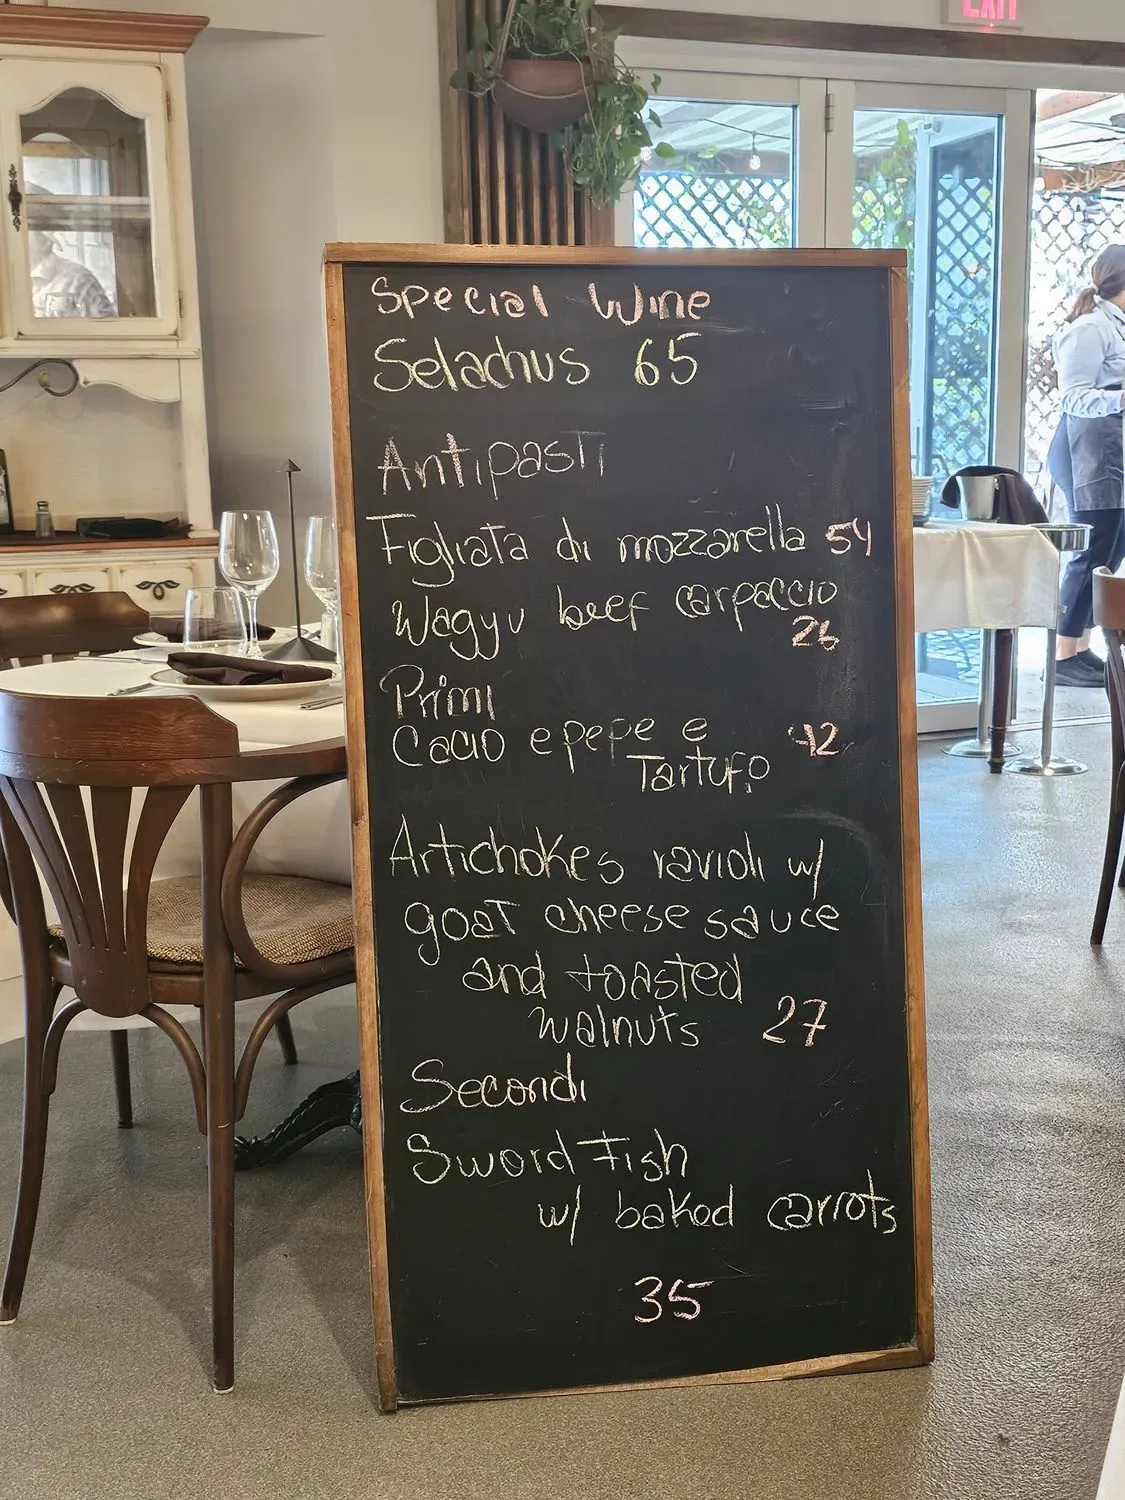 EXIT
Special Wine
Selachus 65
Antipasti
Figliata di mozzarella 54
Wagyu beef carpaccio
26
Primi
Cacio e pepe e 42
Tartufo
Artichokes ravioli w/
goat cheese sauce
and toasted
walnuts 27
Secondi
Sword Fish
w/ baked carrots
35